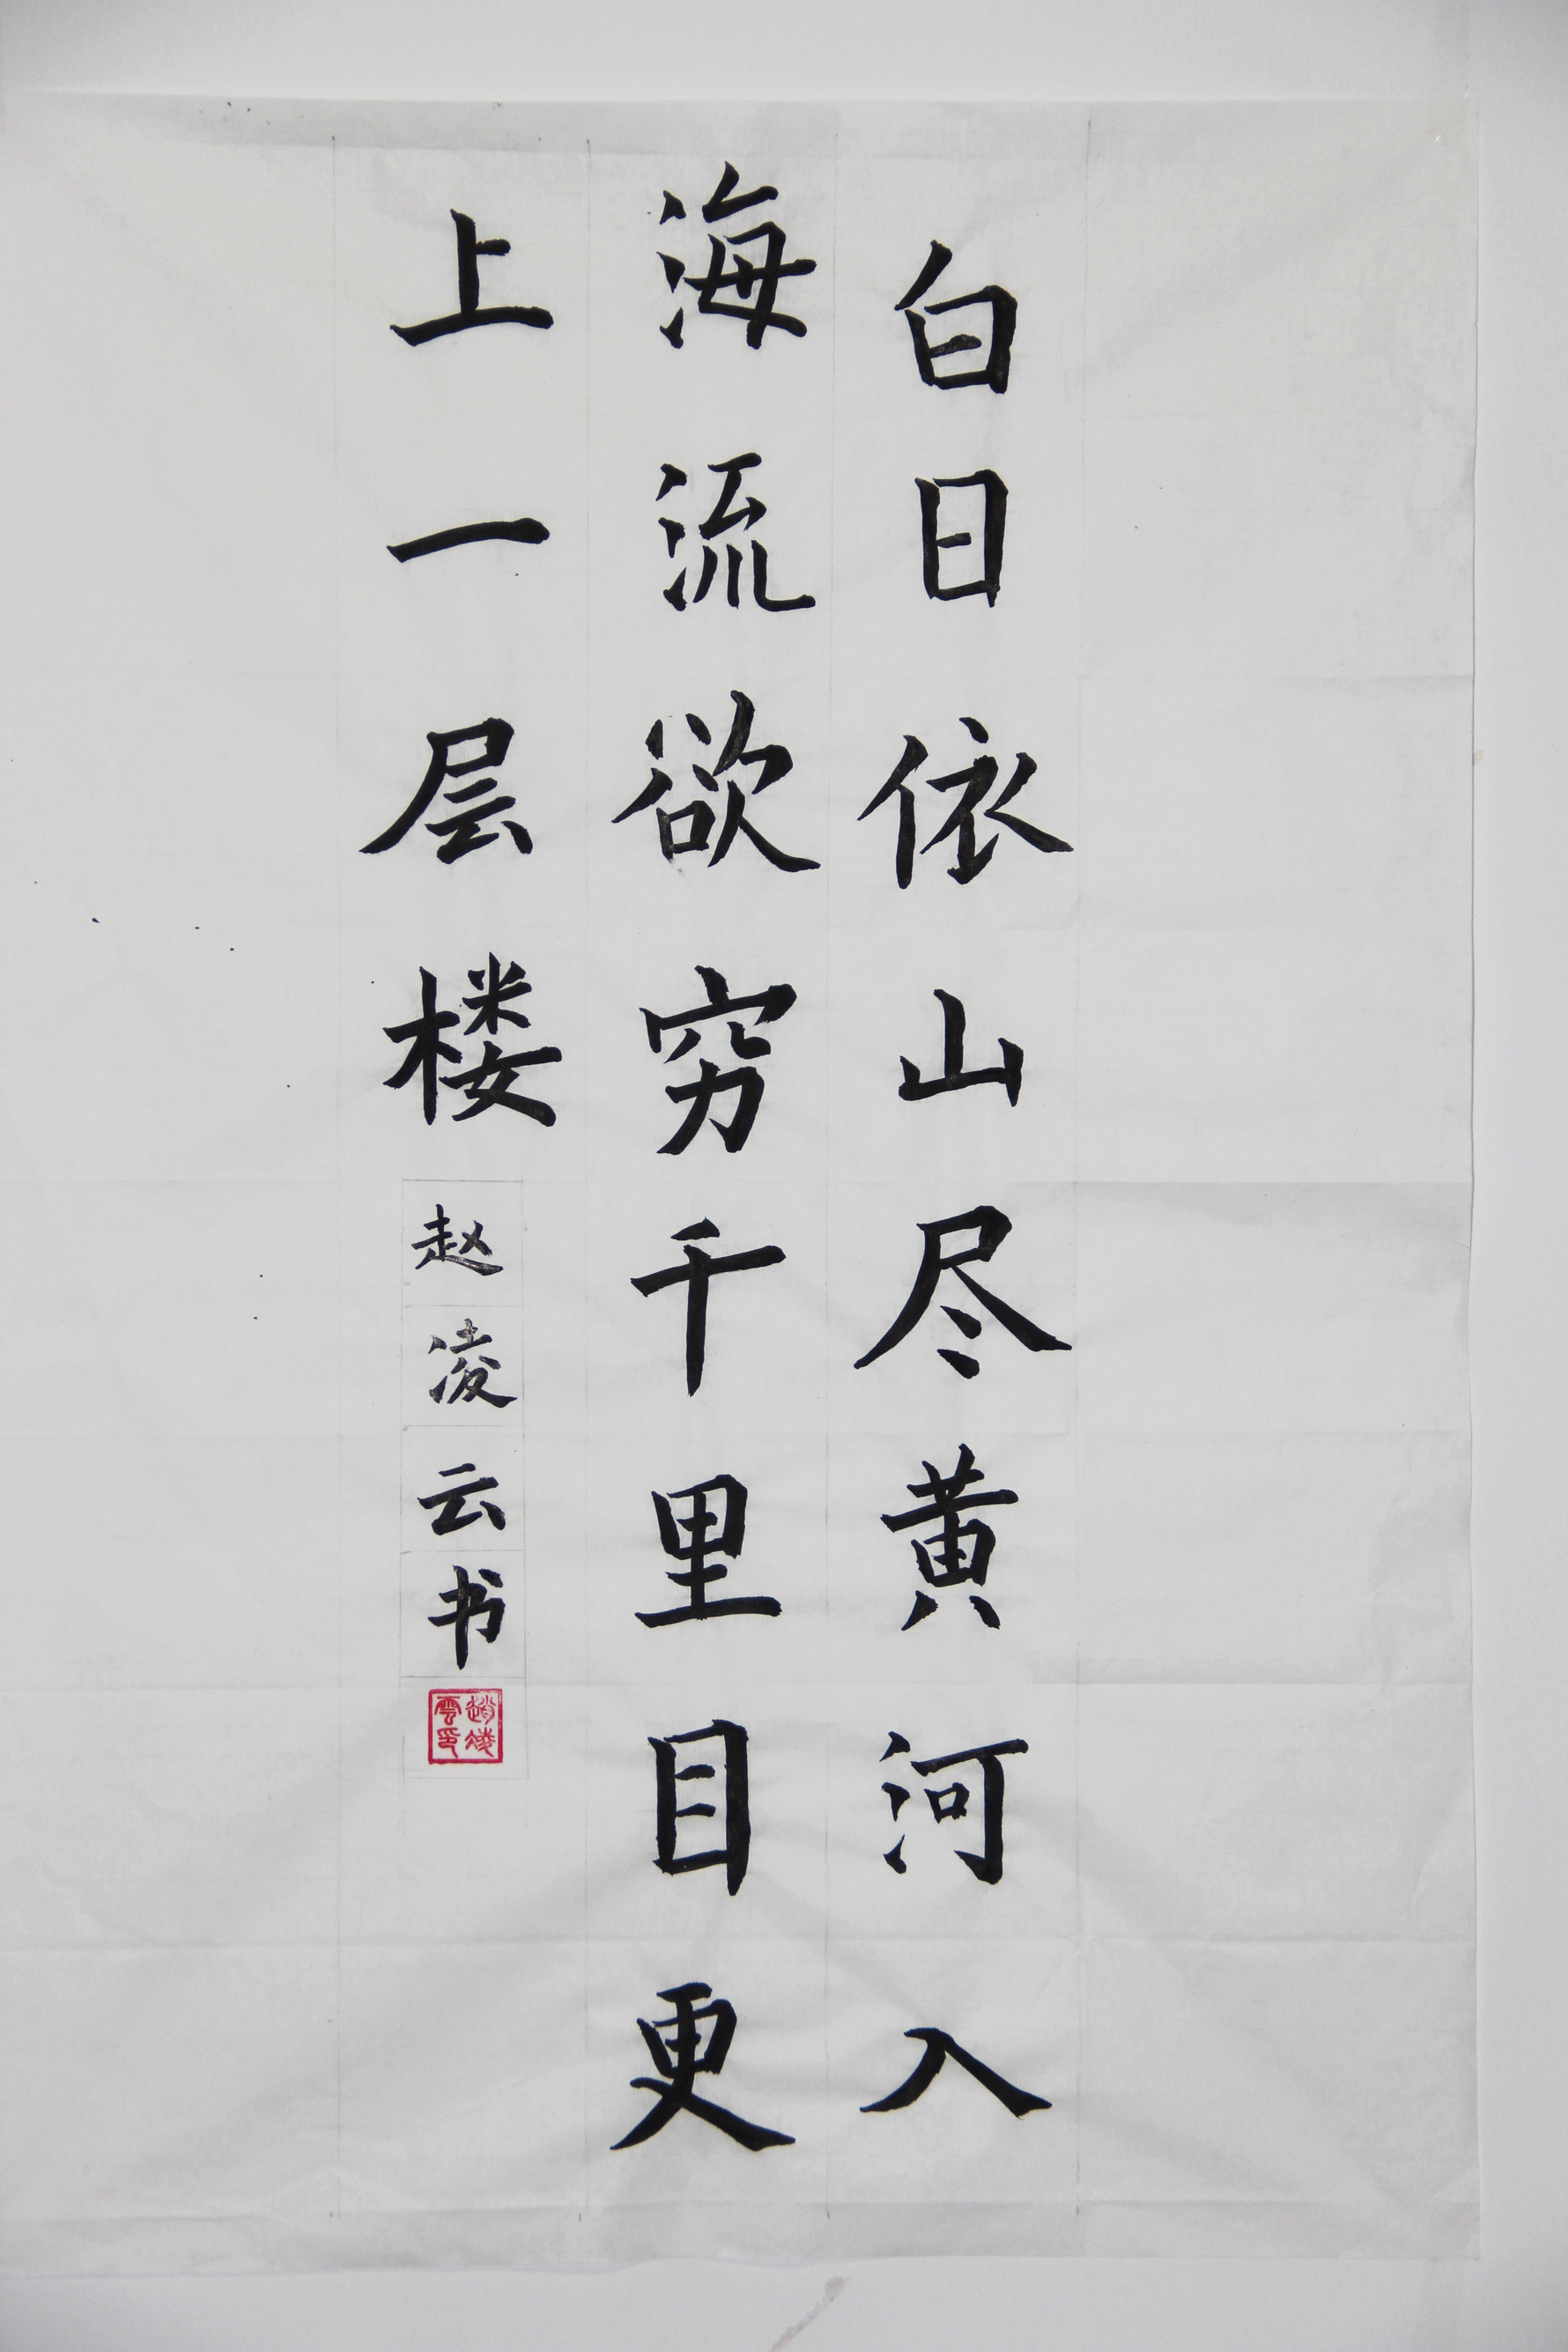 白日依山尽黄河入
海流欲穷千里目更
上一层楼
赵凌云书
趙凌
雲印